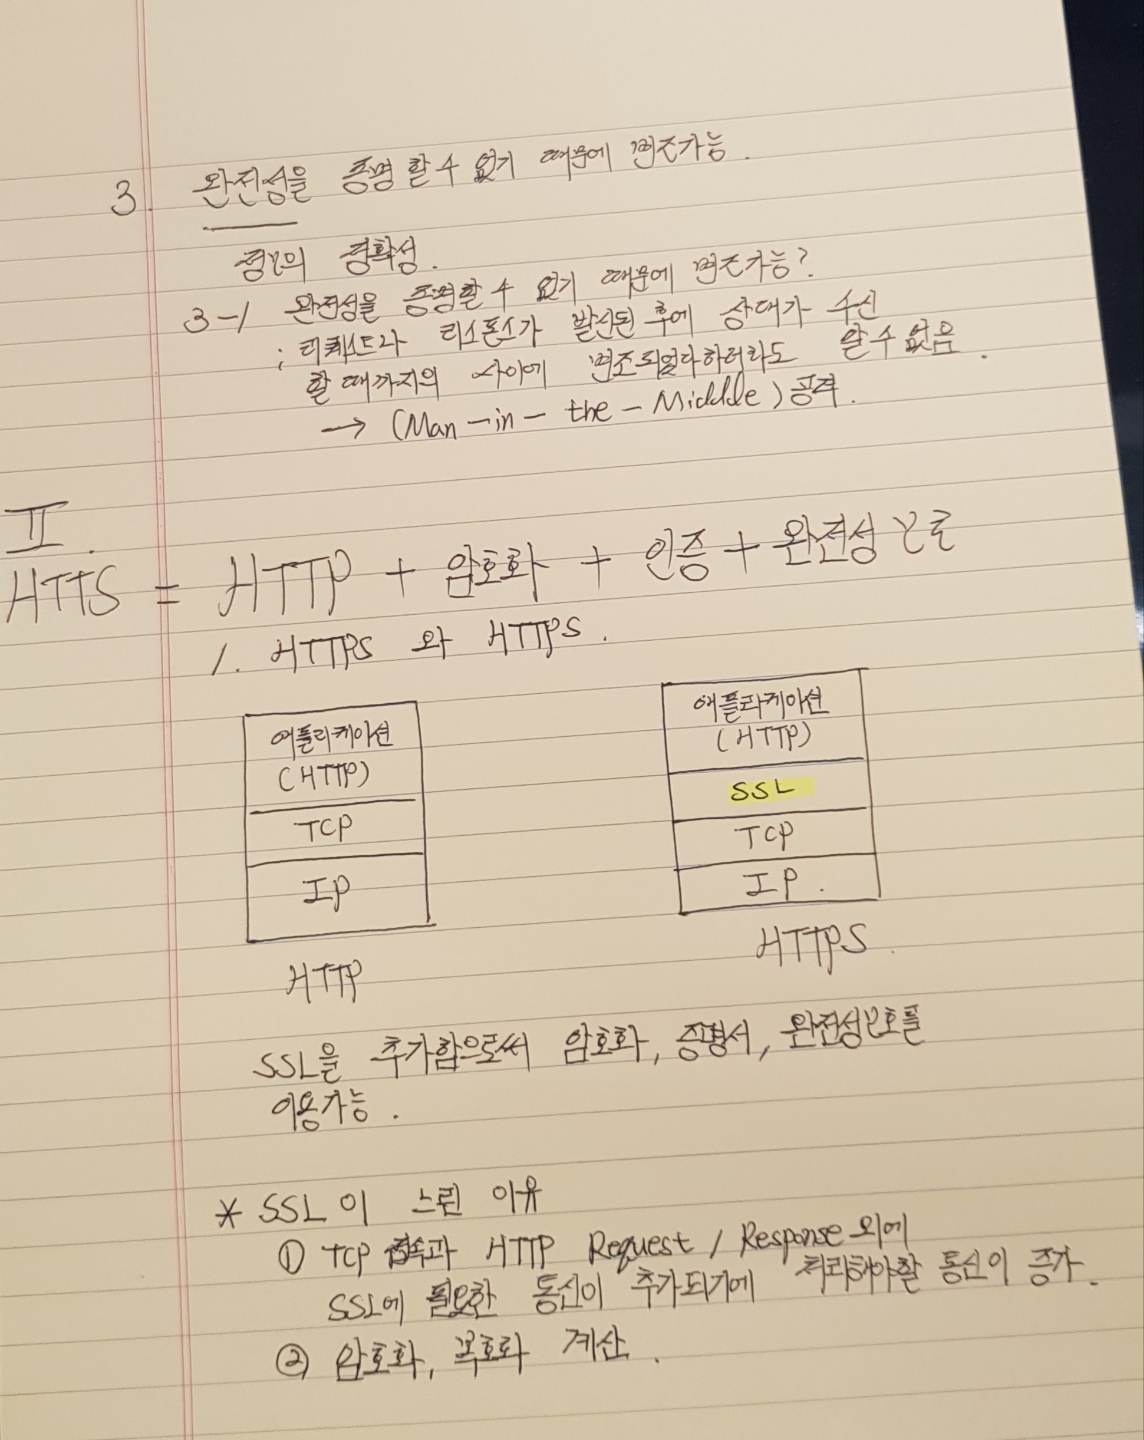 3. 완전성을 증명 할 수 없기 때문에 변조가능.
정보의 정확성.
3-1 완전성을 증명할 수 없기 때문에 변조가능?
; 리퀘스트나 리스폰스가 발신된 후에 상대가 수신
할 때까지의 사이에 변조되었다하더라도 알 수 없음.
→ (Man-in-the-Middle) 공격.
II.
HTTS = HTTP + 암호화 + 인증 + 완전성 보호
1. HTTPS 와 HTTPS.
애플리케이션
(HTTP)
TCP
IP
HTTP
애플리케이션
(HTTP)
SSL
TCP
IP.
HTTPS.
SSL을 추가함으로써 암호화, 증명서, 완전성보호를
이용가능.
* SSL이 느린 이유
① TCP 접속과 HTTP Request / Response 외에
SSL에 필요한 통신이 추가되기에 처리해야할 통신이 증가.
② 암호화, 복호화 계산.